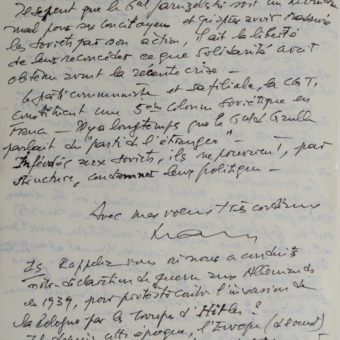 Il se peut que le Gal Jaruzelski soit un moindre
mal pour ses concitoyens et qu'après avoir rassuré
les soviets par son action, il ait la liberté
de leur reconcéder ce que Solidarité avait
obtenu avant la récente crise –
Le parti communiste et sa filiale, la CGT,
constituent une 5eme colonne soviétique en
France – Il y a longtemps que le Gal de Gaulle
parlait du "parti de l'étranger" –
Inféodés aux soviets, ils ne peuvent, par
structure, condamner leur politique –
Avec mes voeux très cordiaux
PS Rappelez vous où nous a conduits
notre déclaration de guerre aux Allemands
en 1939, pour protester contre l'invasion de
la Pologne par les troupes d'Hitler ?
depuis cette époque, l'Europe (